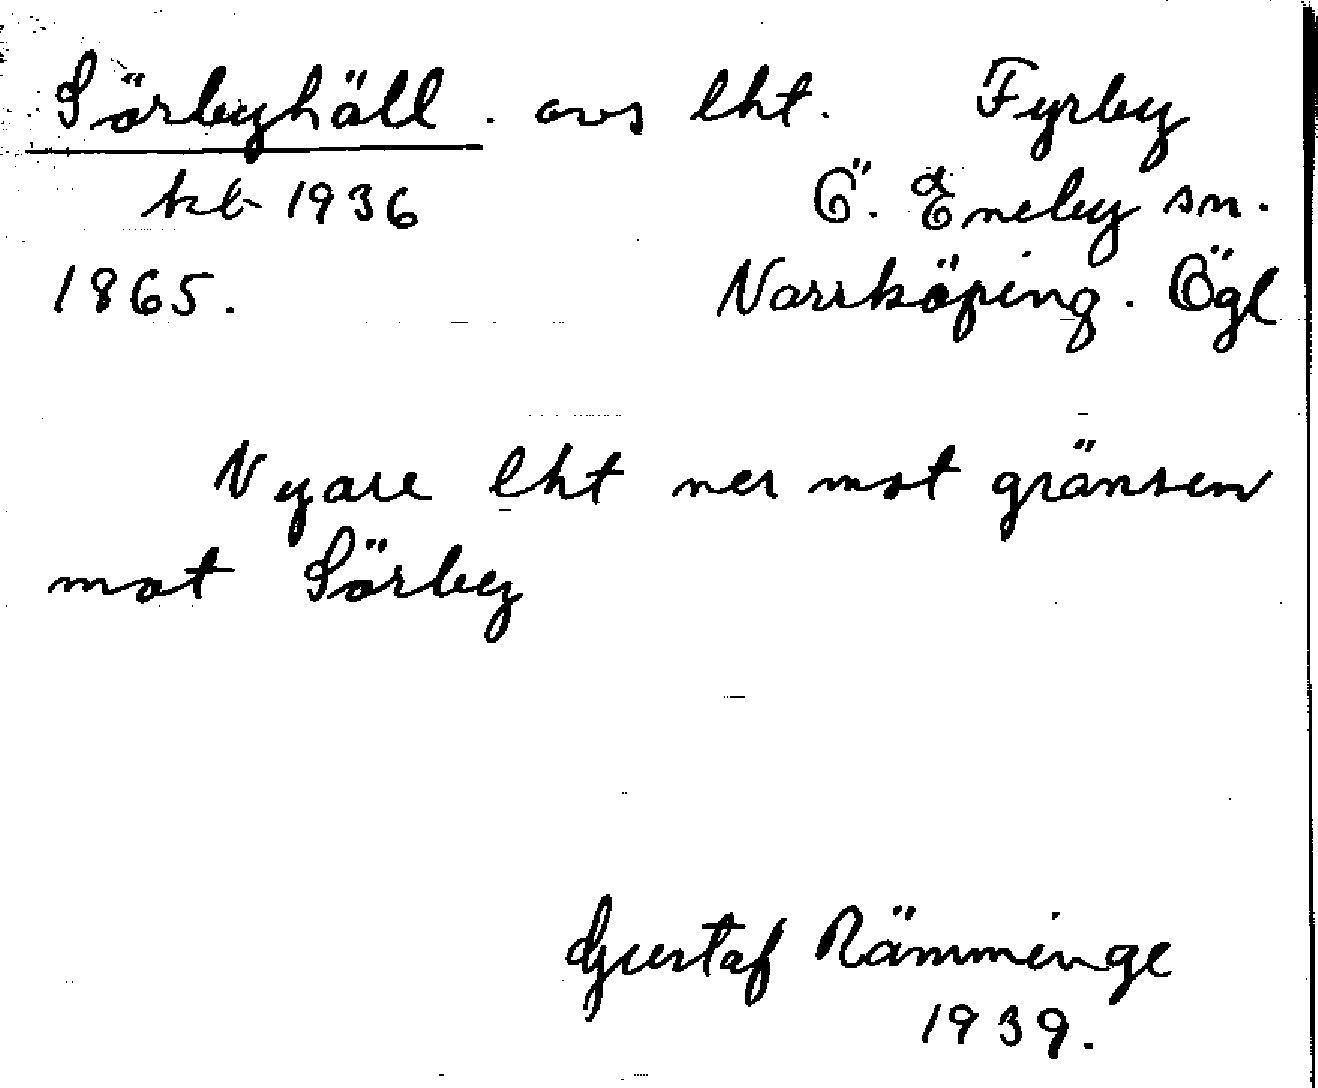 Sörbyhäll. avs lht. Fyrby
kb 1936 Ö. Eneby sn.
1865. Norrköping. Ögl
Nyare lht ner mot gränsen
mot Sörby
Gustaf Rämminge
1939.